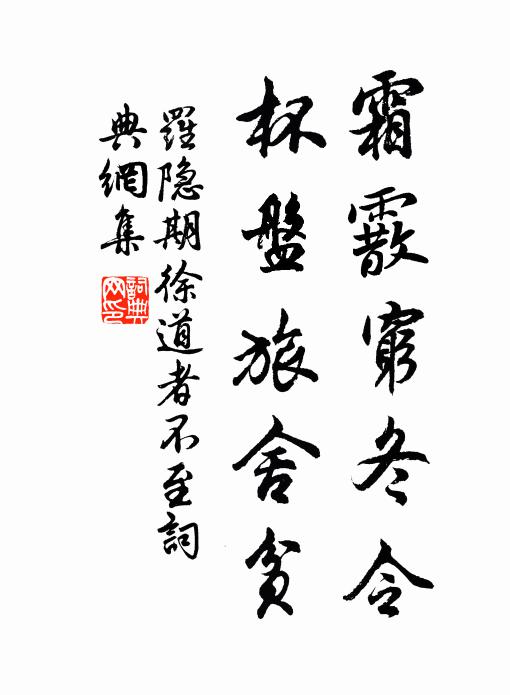 霜霰窮冬令
杯盤旅舍貧
羅隐期徐道者不至詞
典網集
詞典
网印